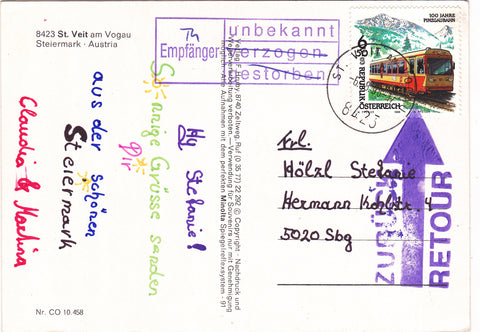 8423 St. Veit am Vogau
Steiermark · Austria
Empfänger
unbekannt
verzogen
gestorben
100 JAHRE
PINZGAUBAHN
6 50
REPUBLIK
ÖSTERREICH
ST. VEIT
8423
Hy Stefanie!
Sonnige Grüsse senden
Dir
aus der schönen
Steiermark
Claudia & Martina
Frl.
Hölzl Stefanie
Hermann
4
5020 Sbg
ZURÜCK
RETOUR
8740 Zeltweg, Ruf (0 35 77) 22 292 © Copyright · Nachdruck und
verboten — Verwendung für Souvenirs nur mit Genehmigung
Alle Aufnahmen mit dem perfekten Minolta Spiegelreflexsystem · 91
Nr. CO 10.458